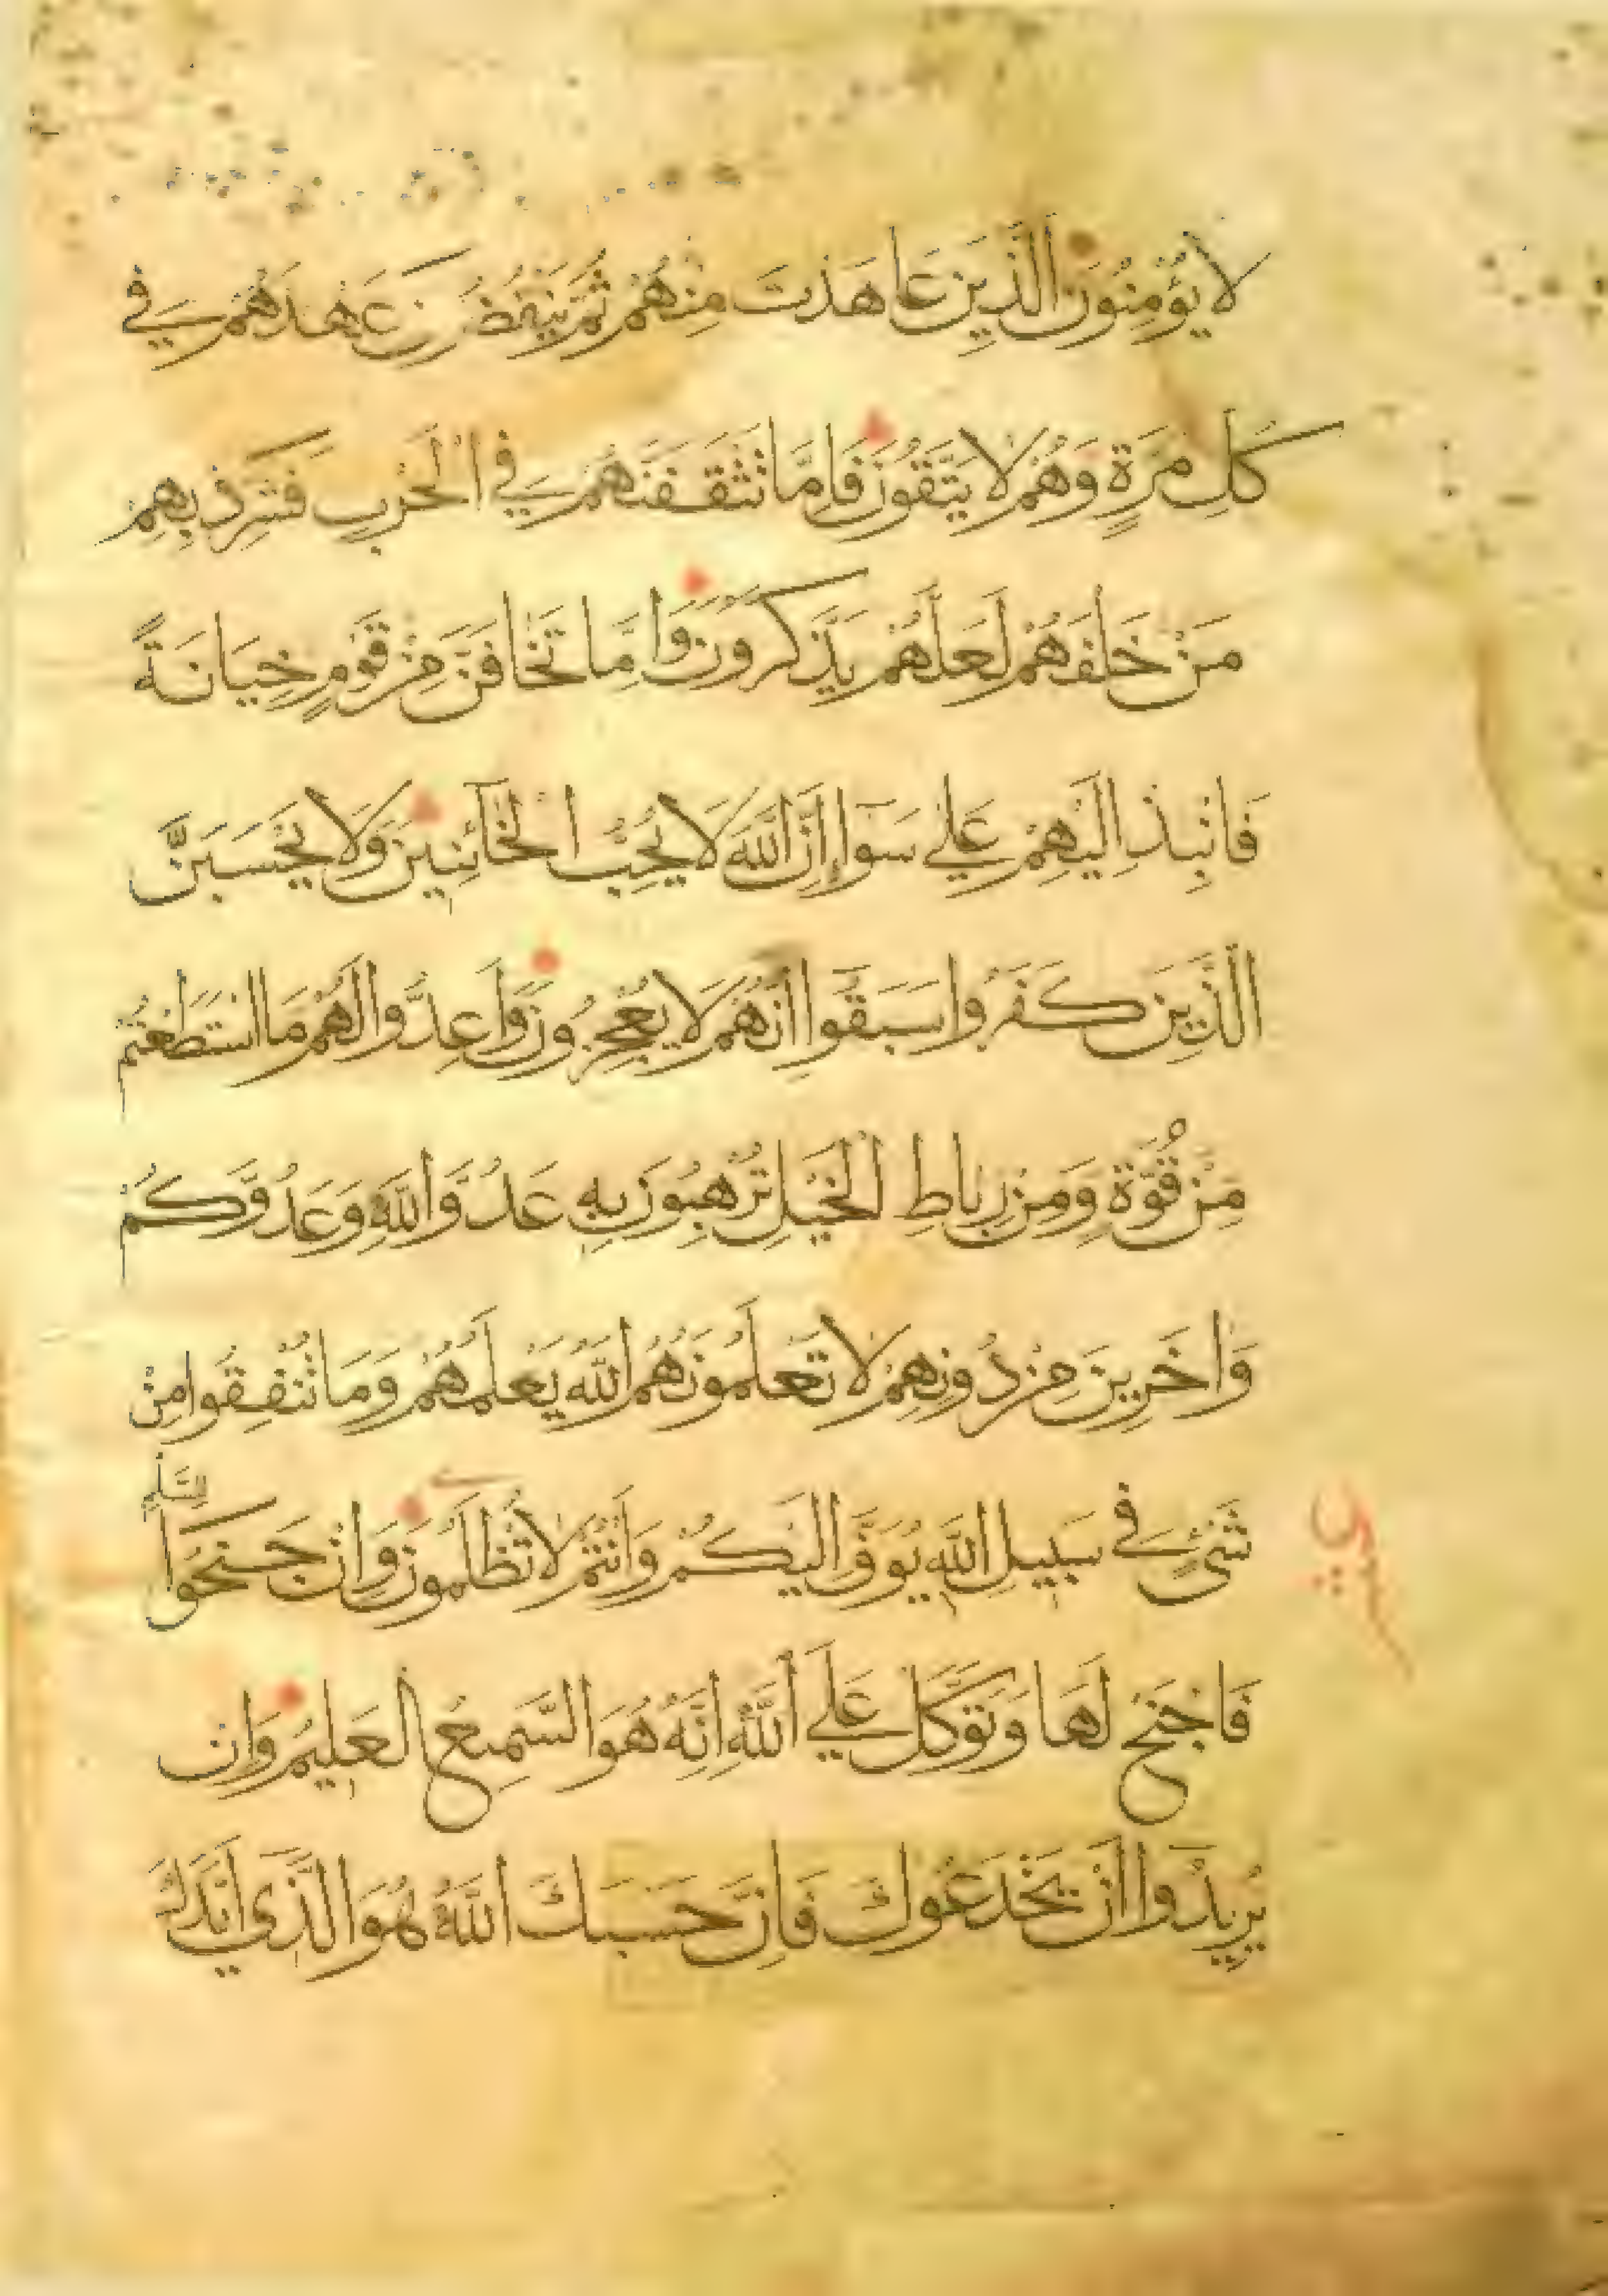 لَا يُؤْمِنُونَ الَّذِينَ عَاهَدْتَ مِنْهُمْ ثُمَّ يَنْقُضُونَ عَهْدَهُمْ فِي
كُلِّ مَرَّةٍ وَهُمْ لَا يَتَّقُونَ فَإِمَّا تَثْقَفَنَّهُمْ فِي الْحَرْبِ فَشَرِّدْ بِهِمْ
مَنْ خَلْفَهُمْ لَعَلَّهُمْ يَذَّكَّرُونَ وَإِمَّا تَخَافَنَّ مِنْ قَوْمٍ خِيَانَةً
فَانْبِذْ إِلَيْهِمْ عَلَي سَوَاءٍ إِنَّ اللَّهَ لَا يُحِبُّ الْخَآئِنِينَ وَلَا يَحْسَبَنَّ
الَّذِينَ كَفَرُوا سَبَقُوا إِنَّهُمْ لَا يُعْجِزُونَ وَأَعِدُّوا لَهُمْ مَا اسْتَطَعْتُمْ
مِنْ قُوَّةٍ وَمِنْ رِبَاطِ الْخَيْلِ تُرْهِبُونَ بِهِ عَدُوَّ اللَّهِ وَعَدُوَّكُمْ
وَاخَرِينَ مِنْ دُونِهِمْ لَا تَعْلَمُونَهُمُ اللَّهُ يَعْلَمُهُمْ وَمَا تُنْفِقُوا مِنْ
شَيْءٍ فِي سَبِيلِ اللَّهِ يُوَفَّ إِلَيْكُمْ وَأَنْتُمْ لَا تُظْلَمُونَ وَإِنْ جَنَحُوا
لِلسَّلْمِ
فَاجْنَحْ لَهَا وَتَوَكَّلْ عَلَي اللَّهِ إِنَّهُ هُوَ السَّمِيعُ الْعَلِيمُ وَإِنْ
يُرِيدُوا أَنْ يَخْدَعُوكَ فَإِنَّ حَسْبَكَ اللَّهُ هُوَ الَّذِي أَيَّدَكَ